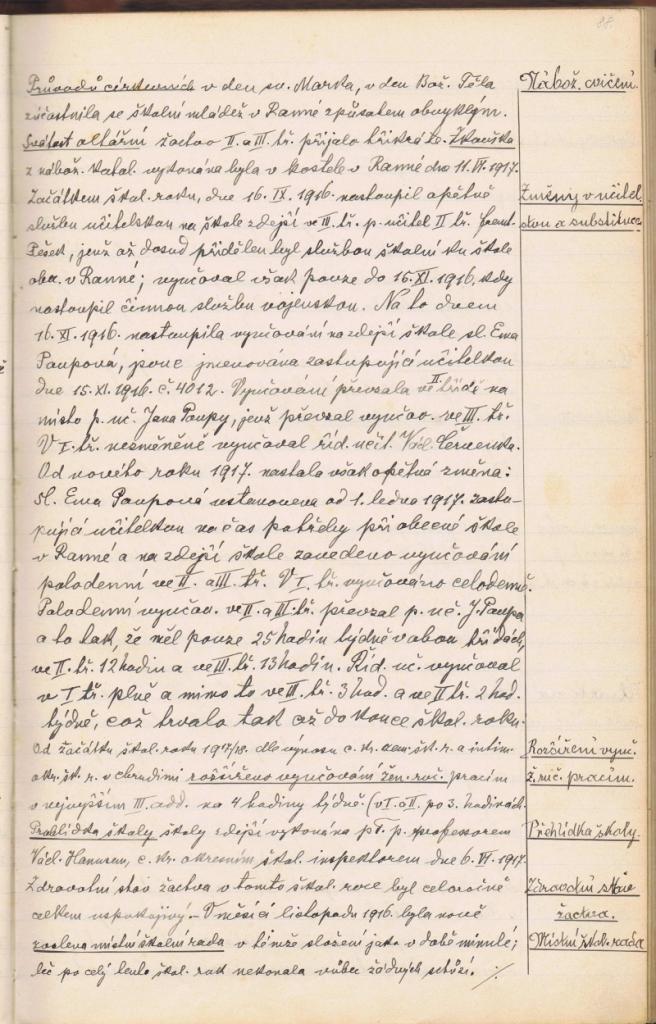 88.
Průvodů církevních v den sv. Marka, v den Bož. Těla
Nábož. cvičení.
zúčastnila se školní mládež v Ranné způsobem obvyklým.
Svátost oltářní žactvo II. a III. tř. přijalo třikráte. Zkouška
z nábož. katol. vykonána byla v kostele v Ranné dne 11. VI. 1917.
Začátkem škol. roku, dne 16. IX. 1916 nastoupil opětně
Změny v učitel.
službu učitelskou na škole zdejší ve III. tř. p. učitel II tř. Frant.
stvu a substituce
Pešek, jenž až dosud přidělen byl službou školní ku škole
ob. v Ranné; vyučoval však pouze do 15. XI. 1916, kdy
nastoupil činnou službu vojenskou. Na to dnem
16. XI. 1916. nastoupila vyučování na zdejší škole sl. Ema
Poupová, jsouc jmenována zastupující učitelkou
dne 15. XI. 1916. č. 4012. Vyučování převzala ve II. třídě na
místo p. uč. Jana Poupy, jenž převzal vyučov. ve III. tř.
V I. tř. nezměněně vyučoval říd. učit. Václ. Červenka.
Od nového roku 1917. nastala však opětná změna:
Sl. Ema Poupová ustanovena od 1. ledna 1917. zastu-
pující učitelkou na čas potřeby při obecné škole
v Ranné a na zdejší škole zavedeno vyučování
polodenní ve II. a III. tř. V I. tř. vyučováno celodenně.
Polodenní vyučov. ve II. a III. tř. převzal p. uč. J. Poupa
a to tak, že měl pouze 25 hodin týdně v obou třídách,
ve II. tř. 12 hodin a ve III. tř. 13 hodin. Říd. uč. vyučoval
v I. tř. plně a mimo to ve III. tř. 3 hod. a ve II. tř. 2 hod.
týdně, což trvalo tak až do konce škol. roku.
Od začátku škol. roku 1917/18. dle výnosu c. kr. zem. šk. r. a intim.
Rozšíření vyuč.
okr. šk. r. v Chrudimi rozšířeno vyučování žen. ruč. pracím
ž. ruč. pracím.
v nejvyšším III. odd. na 4 hodiny týdně. (v I. a II. po 3. hodinách.
Prohlídka školy školy zdejší vykonána p. T. p. professorem
Přehlídka školy.
Václ. Hanusem, c. kr. okresním škol. inspektorem dne 6. VI. 1917.
Zdravotní stav žactva v tomto škol. roce byl celoročně
Zdravotní stav
celkem uspokojivý. – V měsíci listopadu 1916. byla nově
žactva.
zvolena místní školní rada v témže složení jako v době minulé;
Místní škol. rada
leč po celý tento škol. rok nekonala vůbec žádných schůzí. ./.